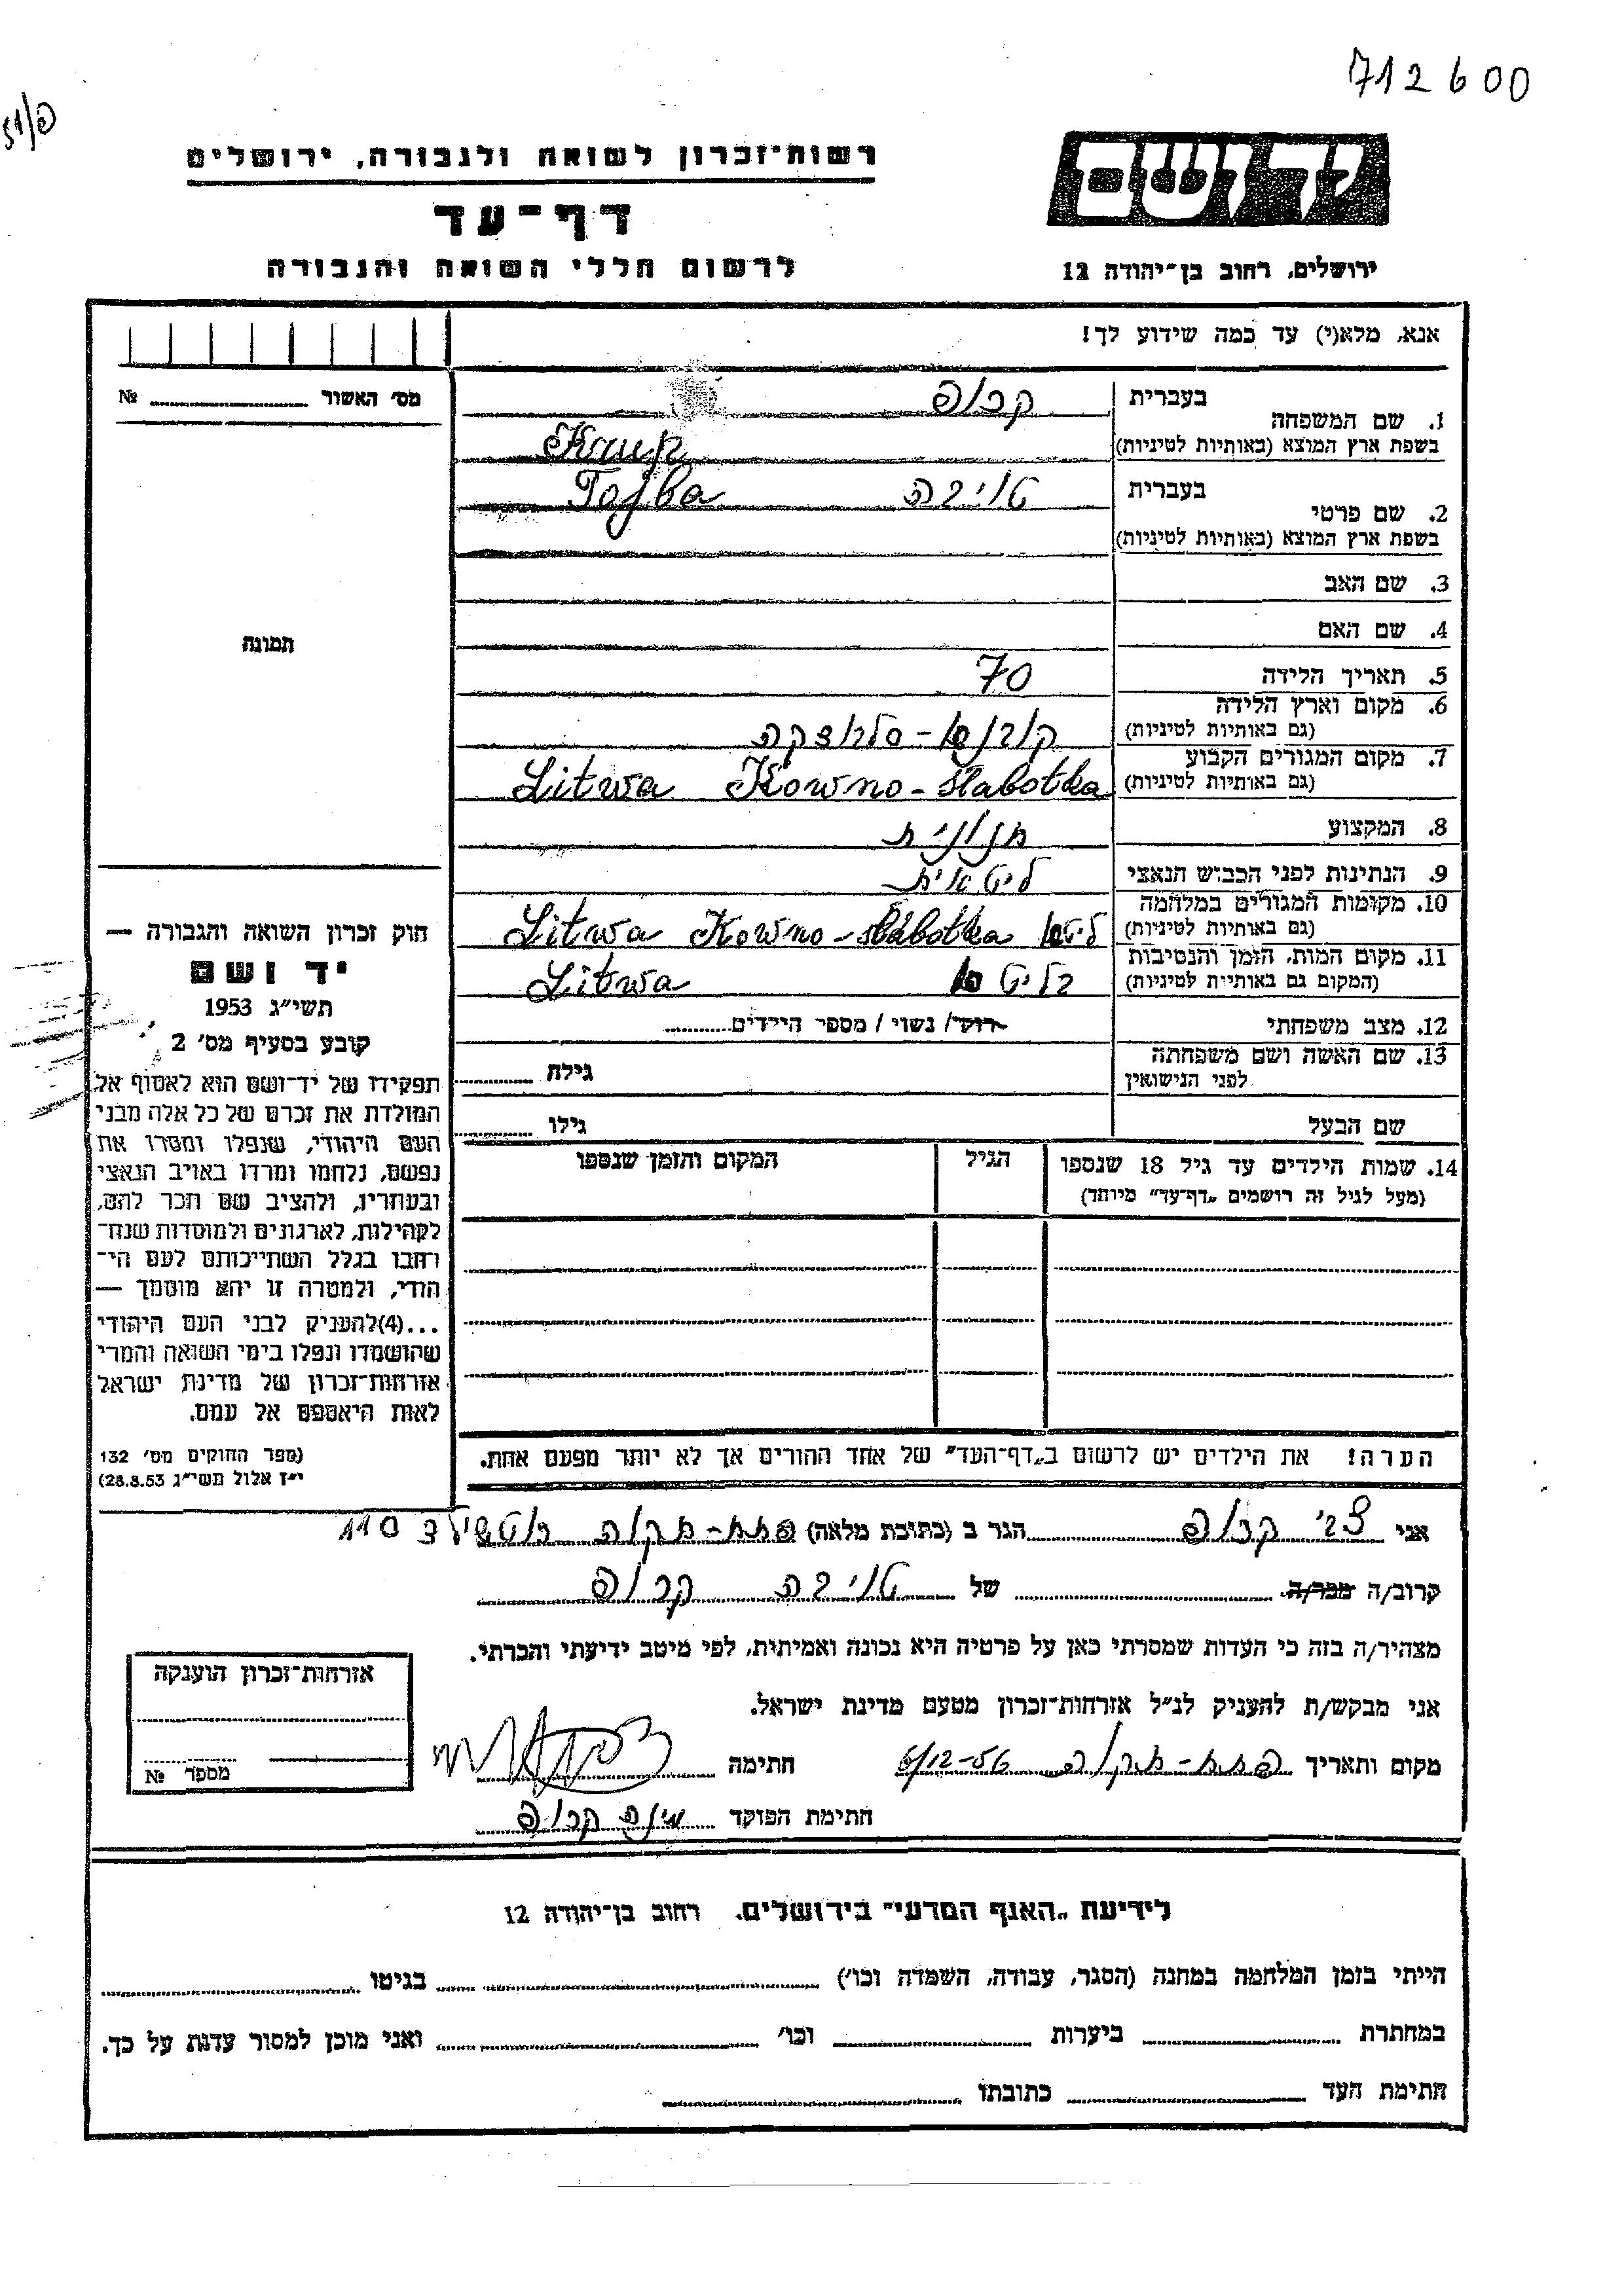 712600
רשות־זכרון לשואה ולגבורה, ירושלים
יד ושם
דף־עד
לרשום חללי השואה והגבורה
ירושלים, רחוב בן־יהודה 12
אנא, מלא(י) עד כמה שידוע לך!
מס׳ האשור № 
1. שם המשפחה בעברית קרופ
בשפת ארץ המוצא (באותיות לטיניות) Krup
2. שם פרטי בעברית טויבה Tojba
בשפת ארץ המוצא (באותיות לטיניות)
3. שם האב
4. שם האם
תמונה
5. תאריך הלידה 70
6. מקום וארץ הלידה
(גם באותיות לטיניות) קובנה - סלבוצקה
7. מקום המגורים הקבוע
(גם באותיות לטיניות) Litwa Kowno - Slabotka
8. המקצוע חנונית
9. הנתינות לפני הכבוש הנאצי ליטאית
10. מקומות המגורים במלחמה
(גם באותיות לטיניות) ליטא Litwa Kowno - Slabotka
11. מקום המות, הזמן והנסיבות
(המקום גם באותיות לטיניות) בליטא Litwa
12. מצב משפחתי רוק/ נשוי / מספר הילדים
13. שם האשה ושם משפחתה
לפני הנישואין גילה
שם הבעל גילו
14. שמות הילדים עד גיל 18 שנספו הגיל המקום והזמן שנספו
(מעל לגיל זה רושמים „דף־עד" מיוחד)
הערה! את הילדים יש לרשום ב„דף־העד" של אחד ההורים אך לא יותר מפעם אחת.
חוק זכרון השואה והגבורה —
יד ושם
תשי״ג 1953
קובע בסעיף מס׳ 2
תפקידו של יד־ושם הוא לאסוף אל
המולדת את זכרם של כל אלה מבני
העם היהודי, שנפלו ומסרו את
נפשם, נלחמו ומרדו באויב הנאצי
ובעוזריו, ולהציב שם וזכר להם,
לקהילות, לארגונים ולמוסדות שנח־
רבו בגלל השתייכותם לעם הי־
הודי, ולמטרה זו יהא מוסמך —
...(4)להעניק לבני העם היהודי
שהושמדו ונפלו בימי השואה והמרי
אזרחות־זכרון של מדינת ישראל
לאות היאספם אל עמם.
(ספר החוקים מס׳ 132
י״ז אלול תשי״ג 28.8.53)
אני צבי קרופ הגר ב (כתובת מלאה) פתח-תקוה רוטשילד 110
קרוב/ה מכר/ה של טויבה קרופ
מצהיר/ה בזה כי העדות שמסרתי כאן על פרטיה היא נכונה ואמיתית, לפי מיטב ידיעתי והכרתי.
אני מבקש/ת להעניק לנ״ל אזרחות־זכרון מטעם מדינת ישראל.
מקום ותאריך פתח-תקוה 6/12-56 חתימה
חתימת הפוקד קרופ
אזרחות־זכרון הוענקה
מספר №
לידיעת „האגף המדעי" בירושלים. רחוב בן־יהודה 12
הייתי בזמן המלחמה במחנה (הסגר, עבודה, השמדה וכו׳) בגיטו
במחתרת ביערות וכו׳ ואני מוכן למסור עדות על כך.
חתימת העד כתובתו